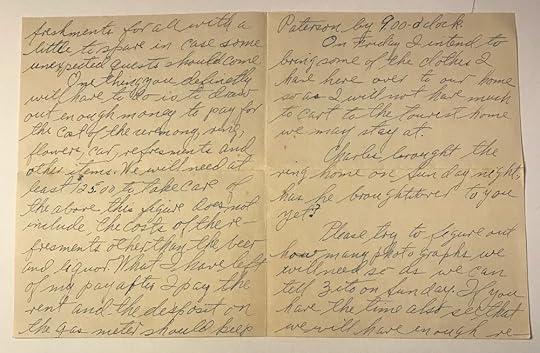 freshments for all with a
little to spare in case some
unexpected guests should come
One thing you definetly
will have to do is to draw
out enough money to pay for
the cost of the ceremony, ring,
flowers, car, refresments and
other items. We will need at
least 125.00 to take care of
the above this figure does not
include the costs of the re-
fresments other than the beer
and liquor. What I have left
of my pay after I pay the
rent and the desposit on
the gas meter should keep
Paterson by 9:00 o'clock
On Friday I intend to
bring some of the clothes I
have here over to our home
so as I will not have much
to cart to the tourist home
we may stay at.
Charles brought the
ring home on Sunday night,
has he brought it over to you
yet?
Please try to figure out
how many photographs we
will need so as we can
tell Zito on Sunday. If you
have the time also see that
we will have enough re-